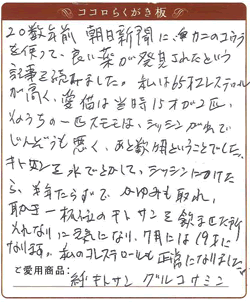 ココロらくがき板
20数年前 朝日新聞に、カニのコウラ
を使って、良い薬が発見されたという
記事を読みました。私は65才コレステロール
が高く、愛猫は当時15才が2匹、
そのうちの一匹スモモは、シッシンがあって
じんぞうも悪く、あと数ヶ月ということでした。
キトサンを水でとかして、シッシンにつけた
ら、半年たらずで、かゆみも取れ、
一粒のキトサンを飲ませた所
それなりに元気になり、7月には19才に
なります。私のコレステロールも正常になりました。
ご愛用商品：
純キトサン グルコサミン